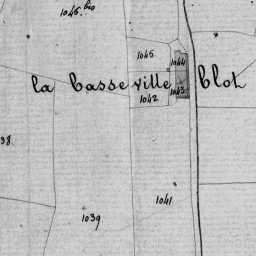 1046.bis
1045
1044
la basse ville blot
1042
1043
38
1039
1041